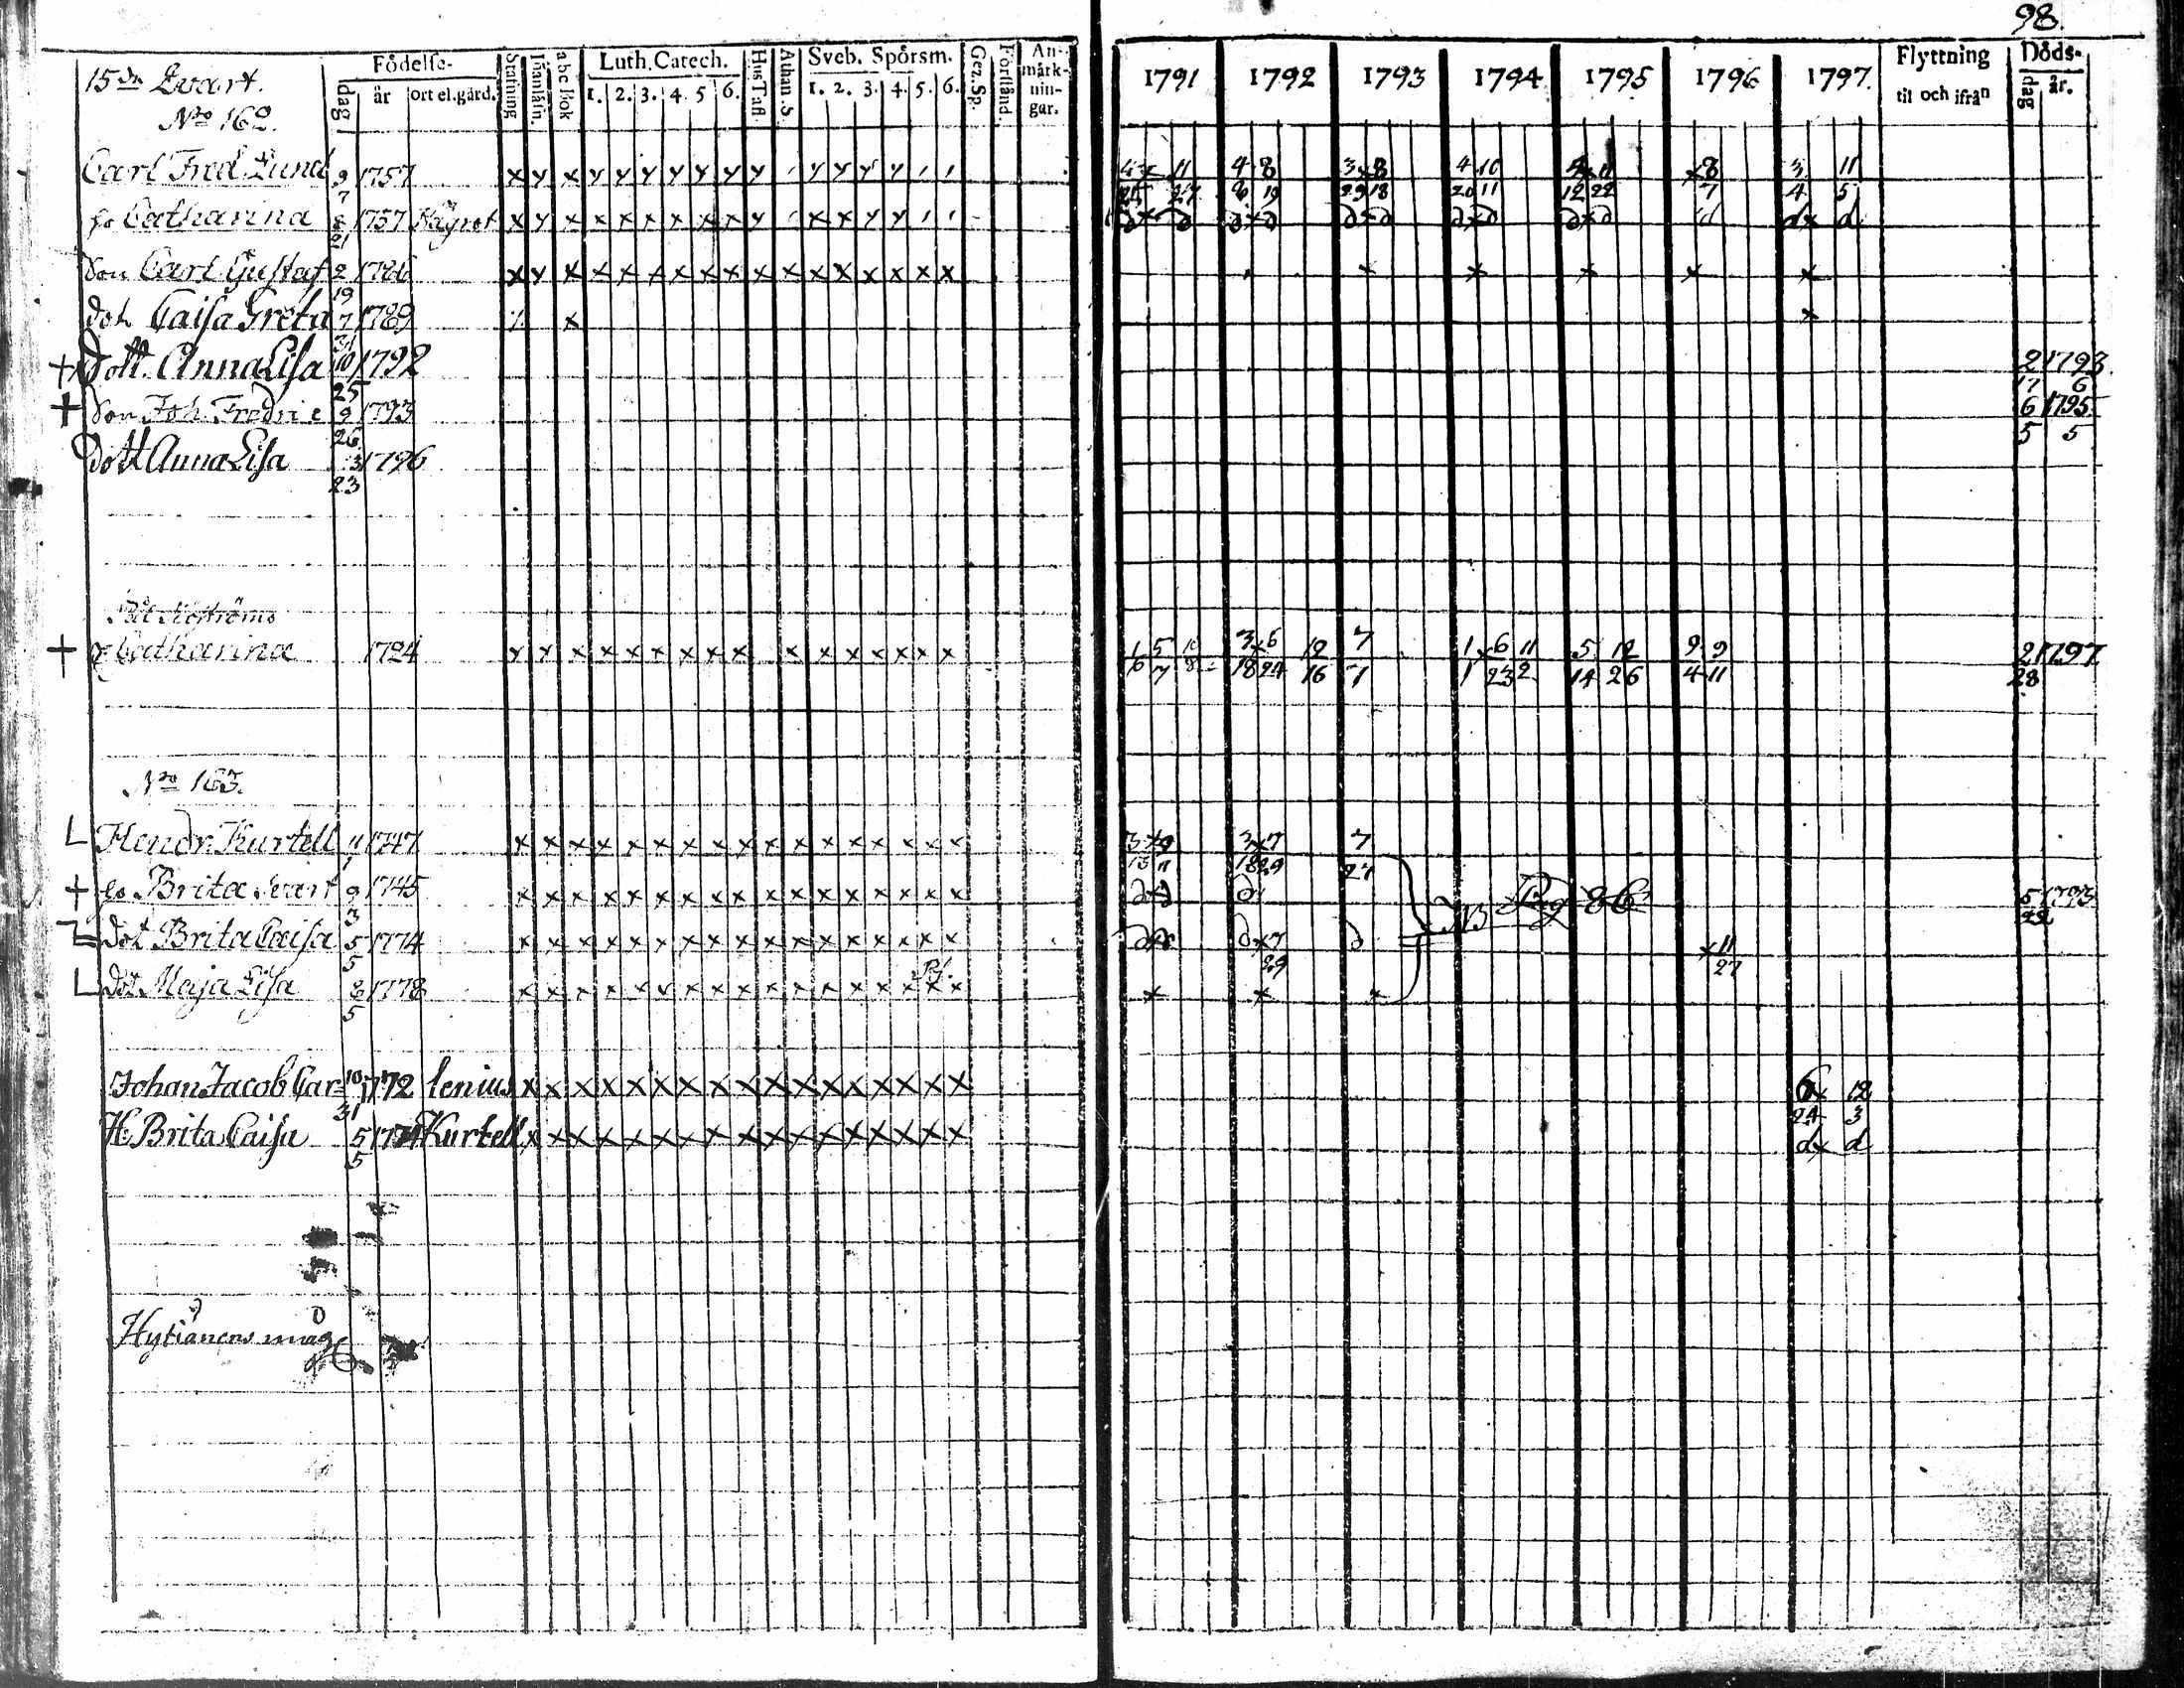 98.
15de Qvart. Födelse- Stafning Inanläsn. abc Bok Luth. Catech. Hus Tafl. Athan. S. Sveb. Spörsm. Gez. Sp. Förstånd. An-märk-nin-gar. 1791 1792 1793 1794 1795 1796 1797. Flyttning til och ifrån Döds-
No 162. dag år ort el. gård. 1. 2. 3. 4. 5 6. 1. 2. 3. 4. 5. 6. dag år.
Carl Fred Lund 9/7 1757 x y x y y y y y y y y y y y
4 x 11 4 8 3 x 8 4 10 x 11 x 8 3 11
27 6 19 29 18 20 11 12 22 7 4 5
hu Catharina 8/21 1757 x y x x x x x x x y x x y y
d x d d x d d x d d x d d x d d d x d
Son Carl Gustaf 2/19 1786 x y x x x x x x x x x x x x x x x
x x x x x
dot Caisa Greta 7/31 1789 x x
+ Dott. Anna Lisa 10/25 1792 2/17 1793. 6
+ Son Joh. Fredric 9/26 1793 6/5 1795 5
Dott Anna Lisa 3/23 1796
+ Catharina 1724 y y x x x x x x x x x x x x x x
1 5 10 3 x 6 12 7 1 x 6 11 5 12 9 9 2 1797
6 7 8 18 24 16 7 1 23 2 14 26 4 11 28
No 163.
L Hendr. Kurtell 11/1 1747 x x x x x x x x x x x x x x x x x
3 x 9 3 x 7 7
13 11 18 29 27
+ Brita 9/3 1745 x x x x x x x x x x x x x x x x x
d x d d NB Pag 86 5/22 1793
dot Brita Caisa 5/5 1774 x x x x x x x x x x x x x x x x x
d x d x 7 d x 11
29 27
L dot Maja Lisa 2/5 1778 x x x x x x x x x x x x x x x x x
x x x
Johan Jacob Car= 10/31 1772 lenius x x x x x x x x x x x x x x x x x
6 x 12
24 3
H. Brita Caisa 5/5 1774 Kurtell x x x x x x x x x x x x x x x x x
d x d